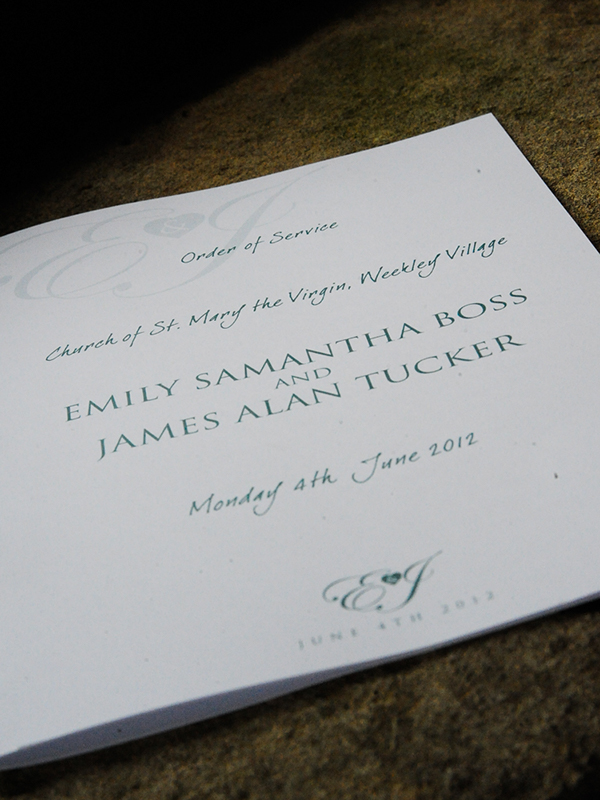 EJ
Order of Service
Church of St. Mary the Virgin, Weekley Village
EMILY SAMANTHA BOSS
AND
JAMES ALAN TUCKER
Monday 4th June 2012
EJ
JUNE 4TH 2012